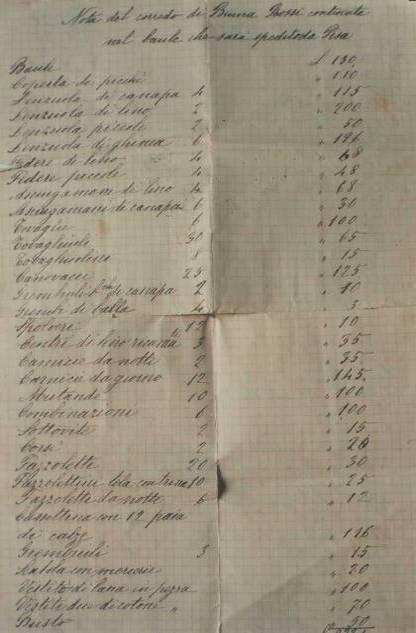 Nota del corredo di Bruna Rossi contenuta
nel baule che sarà spedito da Pisa
Baule £ 130
Coperta di picchè " 110
Lenzuola di canapa 4 " 115
Lenzuola di lino 2 " 200
Lenzuola piccole 2 " 50
Lenzuola di ghinea 6 " 196
Federe di lino 4 " 68
Federe piccole 4 " 48
Asciugamani di lino 4 " 68
Asciugamani di canapa 6 " 30
Tovaglie 6 " 100
Tovaglioli 30 " 65
Tovagliolini 8 " 15
Canovacci 25 " 125
di canapa 2 " 10
di balla 4 " 3
Spolveri 12 " 10
Centri di lino ricamati 3 " 35
Camicie da notte 2 " 35
Camicie da giorno 12 " 145
Mutande 10 " 100
Combinazioni 6 " 100
Sottovite 2 " 15
Corsè 2 " 20
Fazzolette 20 " 30
Fazzolettini tela con trina 10 " 25
Fazzolette da notte 6 " 12
Cassettina con 12 paia
di calze " 116
Grembiuli 3 " 15
con mercerie " 20
Vestito di lana in pezza " 100
Vestiti due di cotone " " 70
Busto